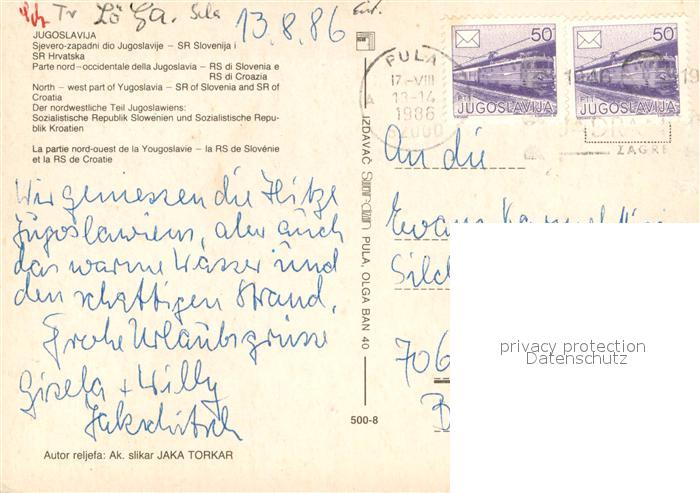 13.8.86
JUGOSLAVIJA
Sjevero-zapadni dio Jugoslavije – SR Slovenija i
SR Hrvatska
Parte nord – occidentale della Jugoslavia – RS di Slovenia e
RS di Croazia
North – west part of Yugoslavia – SR of Slovenia and SR of
Croatia
Der nordwestliche Teil Jugoslawiens:
Sozialistische Republik Slowenien und Sozialistische Repu-
blik Kroatien
La partie nord-ouest de la Yougoslavie – la RS de Slovénie
et la RS de Croatie
Wir geniessen die Hitze
Jugoslawiens, aber auch
das warme Wasser und
den schattigen Strand.
Frohe Urlaubsgrüsse
Gisela + Willy
Jakschitsch
Autor reljefa: Ak. slikar JAKA TORKAR
IZDAVAČ PULA, OLGA BAN 40
500-8
50
PTT JUGOSLAVIJA
50
PTT JUGOSLAVIJA
PULA
17.-VIII
13-14
1986
1946
ZAGRE
An die
706
privacy protection
Datenschutz